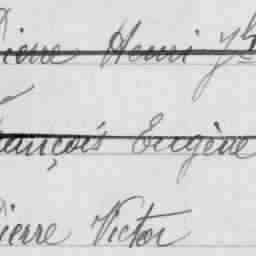 Pierre Henri Y
François Eugène
Pierre Victor